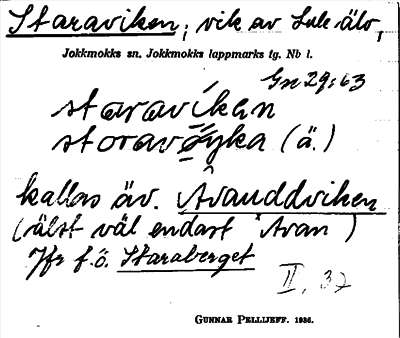 Staraviken, vik av Lule älv,
Jokkmokks sn. Jokkmokks lappmarks tg. Nb l.
Gn 29:63
staravíkan
storavøyka (ä.)
kallas äv. Avauddviken
(älst väl endast *Avan)
Jfr f.ö. Staraberget
II, 37
GUNNAR PELLIJEFF. 1936.